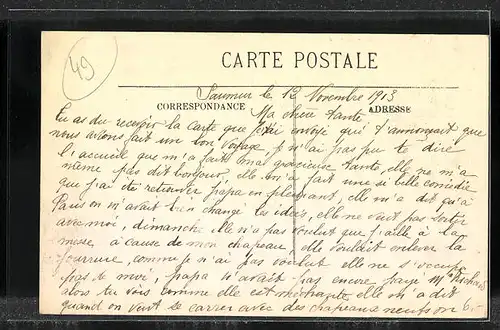 49
CARTE POSTALE
Saumur le 12 Novembre 1913
CORRESPONDANCE
ADRESSE
Ma chère tante,
Tu as du recevoir la carte que j'ai envoyé qui t'annonçait que
nous avions fait un bon voyage, je n'ai pas pu te dire
l'accueil que m'a fait ma gracieuse tante, elle ne m'a
même pas dit bonjour, elle m'a fait une si belle comédie
que j'ai été retrouver papa en pleurant, elle m'a dit qu'à
Paris on m'avait bien changé les idées, elle ne veut pas sortir
avec moi, dimanche elle n'a pas voulut que j'aille à la
messe, à cause de mon chapeau, elle voulait enlever la
fourrure, comme je n'ai pas voulut elle ne s'occupe
pas de moi, papa n'avait pas encore payé
alors tu vois comme elle est elle m'a dit
quand on veut se carrer avec des chapeaux
6.-